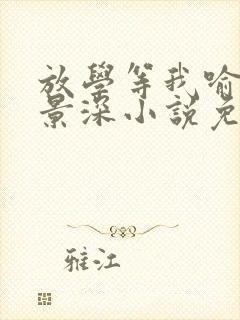 放學等我喻
景深小説免
雅江